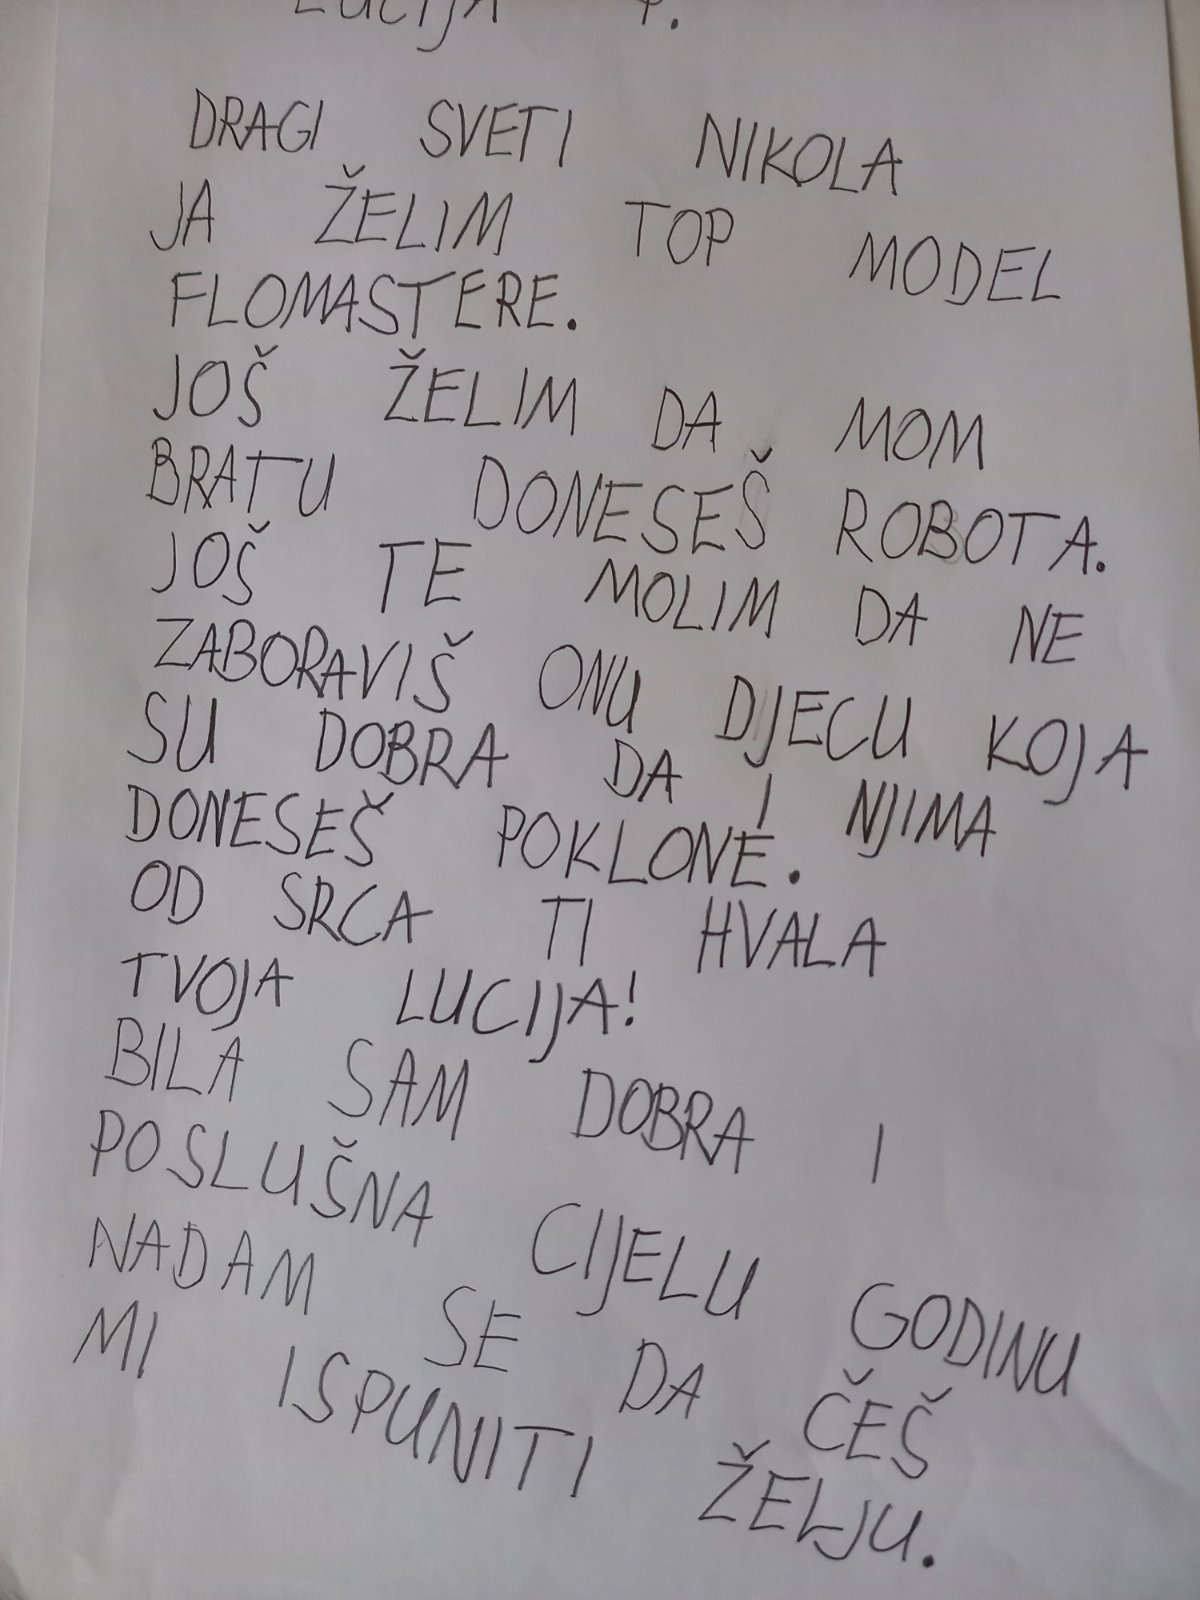 LUCIJA P.
DRAGI SVETI NIKOLA
JA ŽELIM TOP MODEL
FLOMASTERE.
JOŠ ŽELIM DA MOM
BRATU DONESEŠ ROBOTA.
JOŠ TE MOLIM DA NE
ZABORAVIŠ ONU DJECU KOJA
SU DOBRA DA I NJIMA
DONESEŠ POKLONE.
OD SRCA TI HVALA
TVOJA LUCIJA!
BILA SAM DOBRA I
POSLUŠNA CIJELU GODINU
NADAM SE DA ČEŠ
MI ISPUNITI ŽELJU.